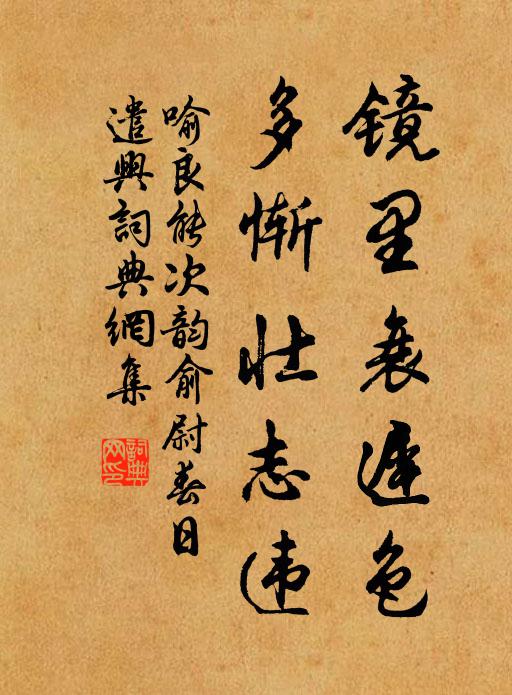 镜里衰迟色
多惭壮志违
喻良能次韵俞尉春日
遣興詞典網集
詞典网印